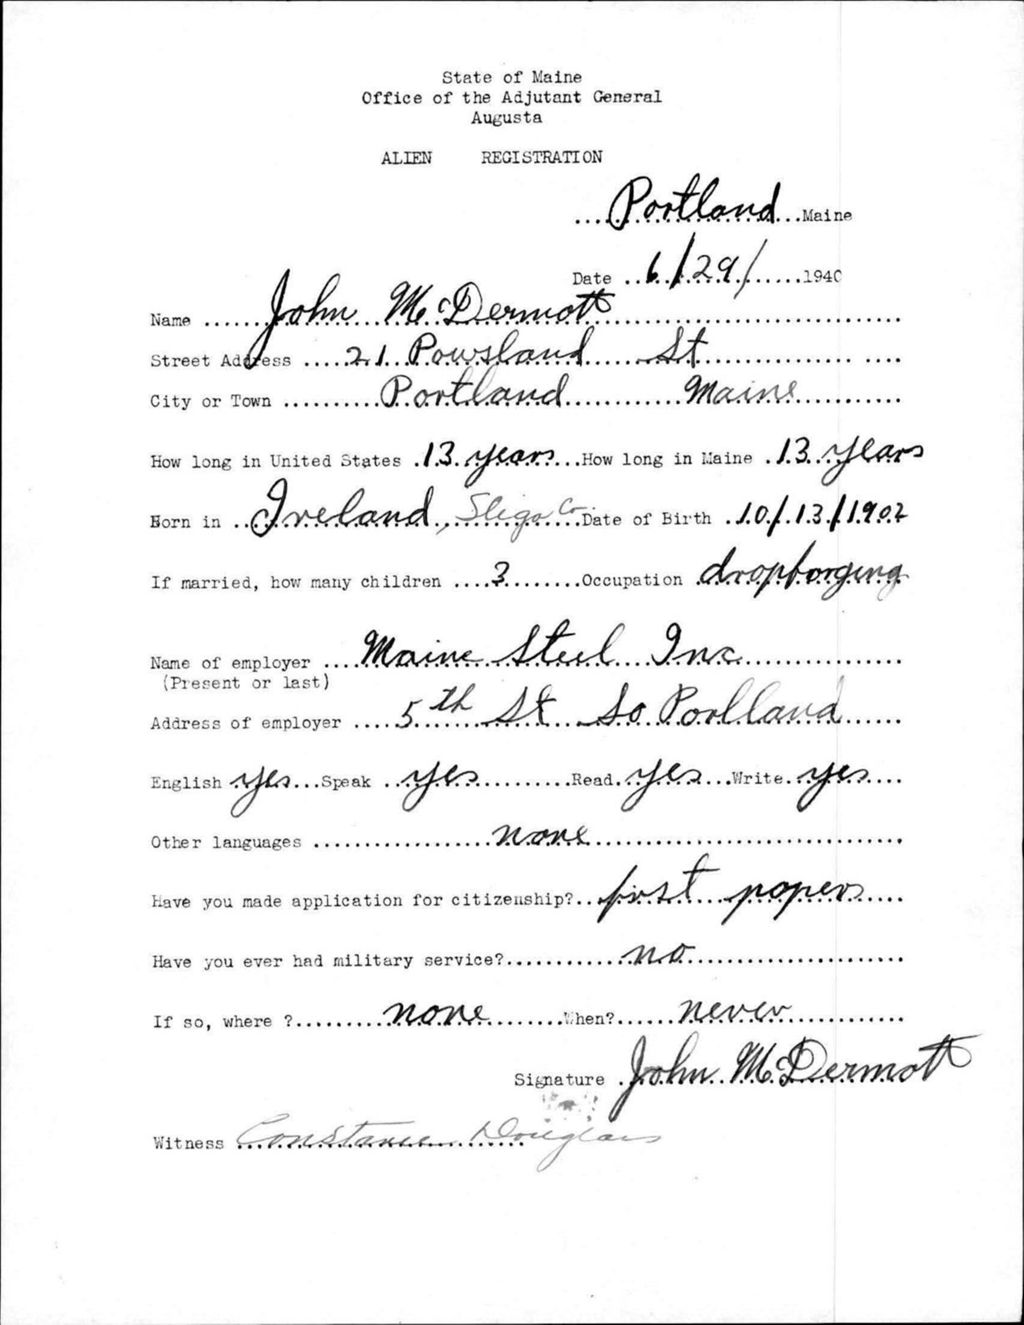 State of Maine
Office of the Adjutant General
Augusta
ALIEN REGISTRATION
....Portland...Maine
Date ..6/29/......1940
Name ......John McDermott..............................
Street Address ....21 Powsland St.................
City or Town ..........Portland............Maine...........
How long in United States .13.years...How long in Maine .13.years
Born in ..Ireland, Sligo Co...Date of Birth .10/13/1902
If married, how many children ....3........Occupation .dropforging
Name of employer ....Maine Steel Inc................
(Present or last)
Address of employer ....5th St So Portland......
English yes...Speak ..yes..........Read.yes...Write..yes....
Other languages ..................none...............................
Have you made application for citizenship?..first papers....
Have you ever had military service?............no......................
If so, where ?.........none........When?......never............
Signature .John McDermott
Witness Constance Douglass